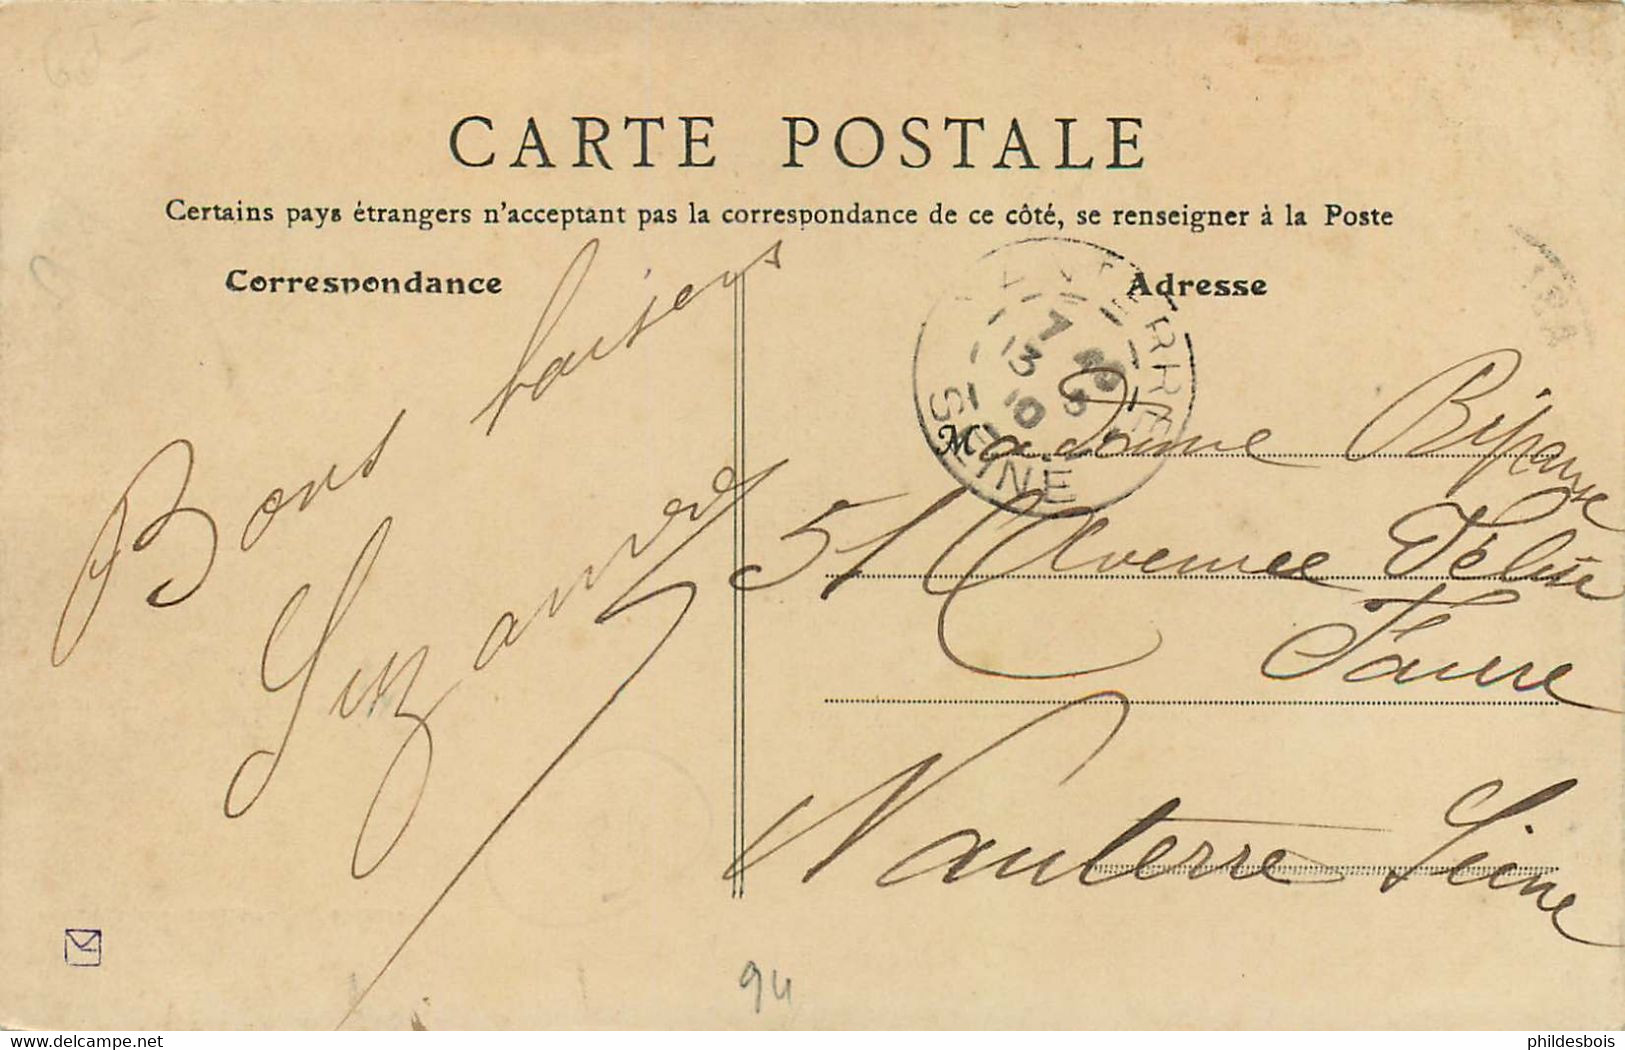 CARTE POSTALE
Certains pays étrangers n'acceptant pas la correspondance de ce côté, se renseigner à la Poste
Correspondance
Bons baisers
Suzanne
Adresse
NANTERRE
7
13
10
SEINE
Madame
51 Avenue Félix
Faure
Nanterre Seine
94
delcampe.net
phildesbois